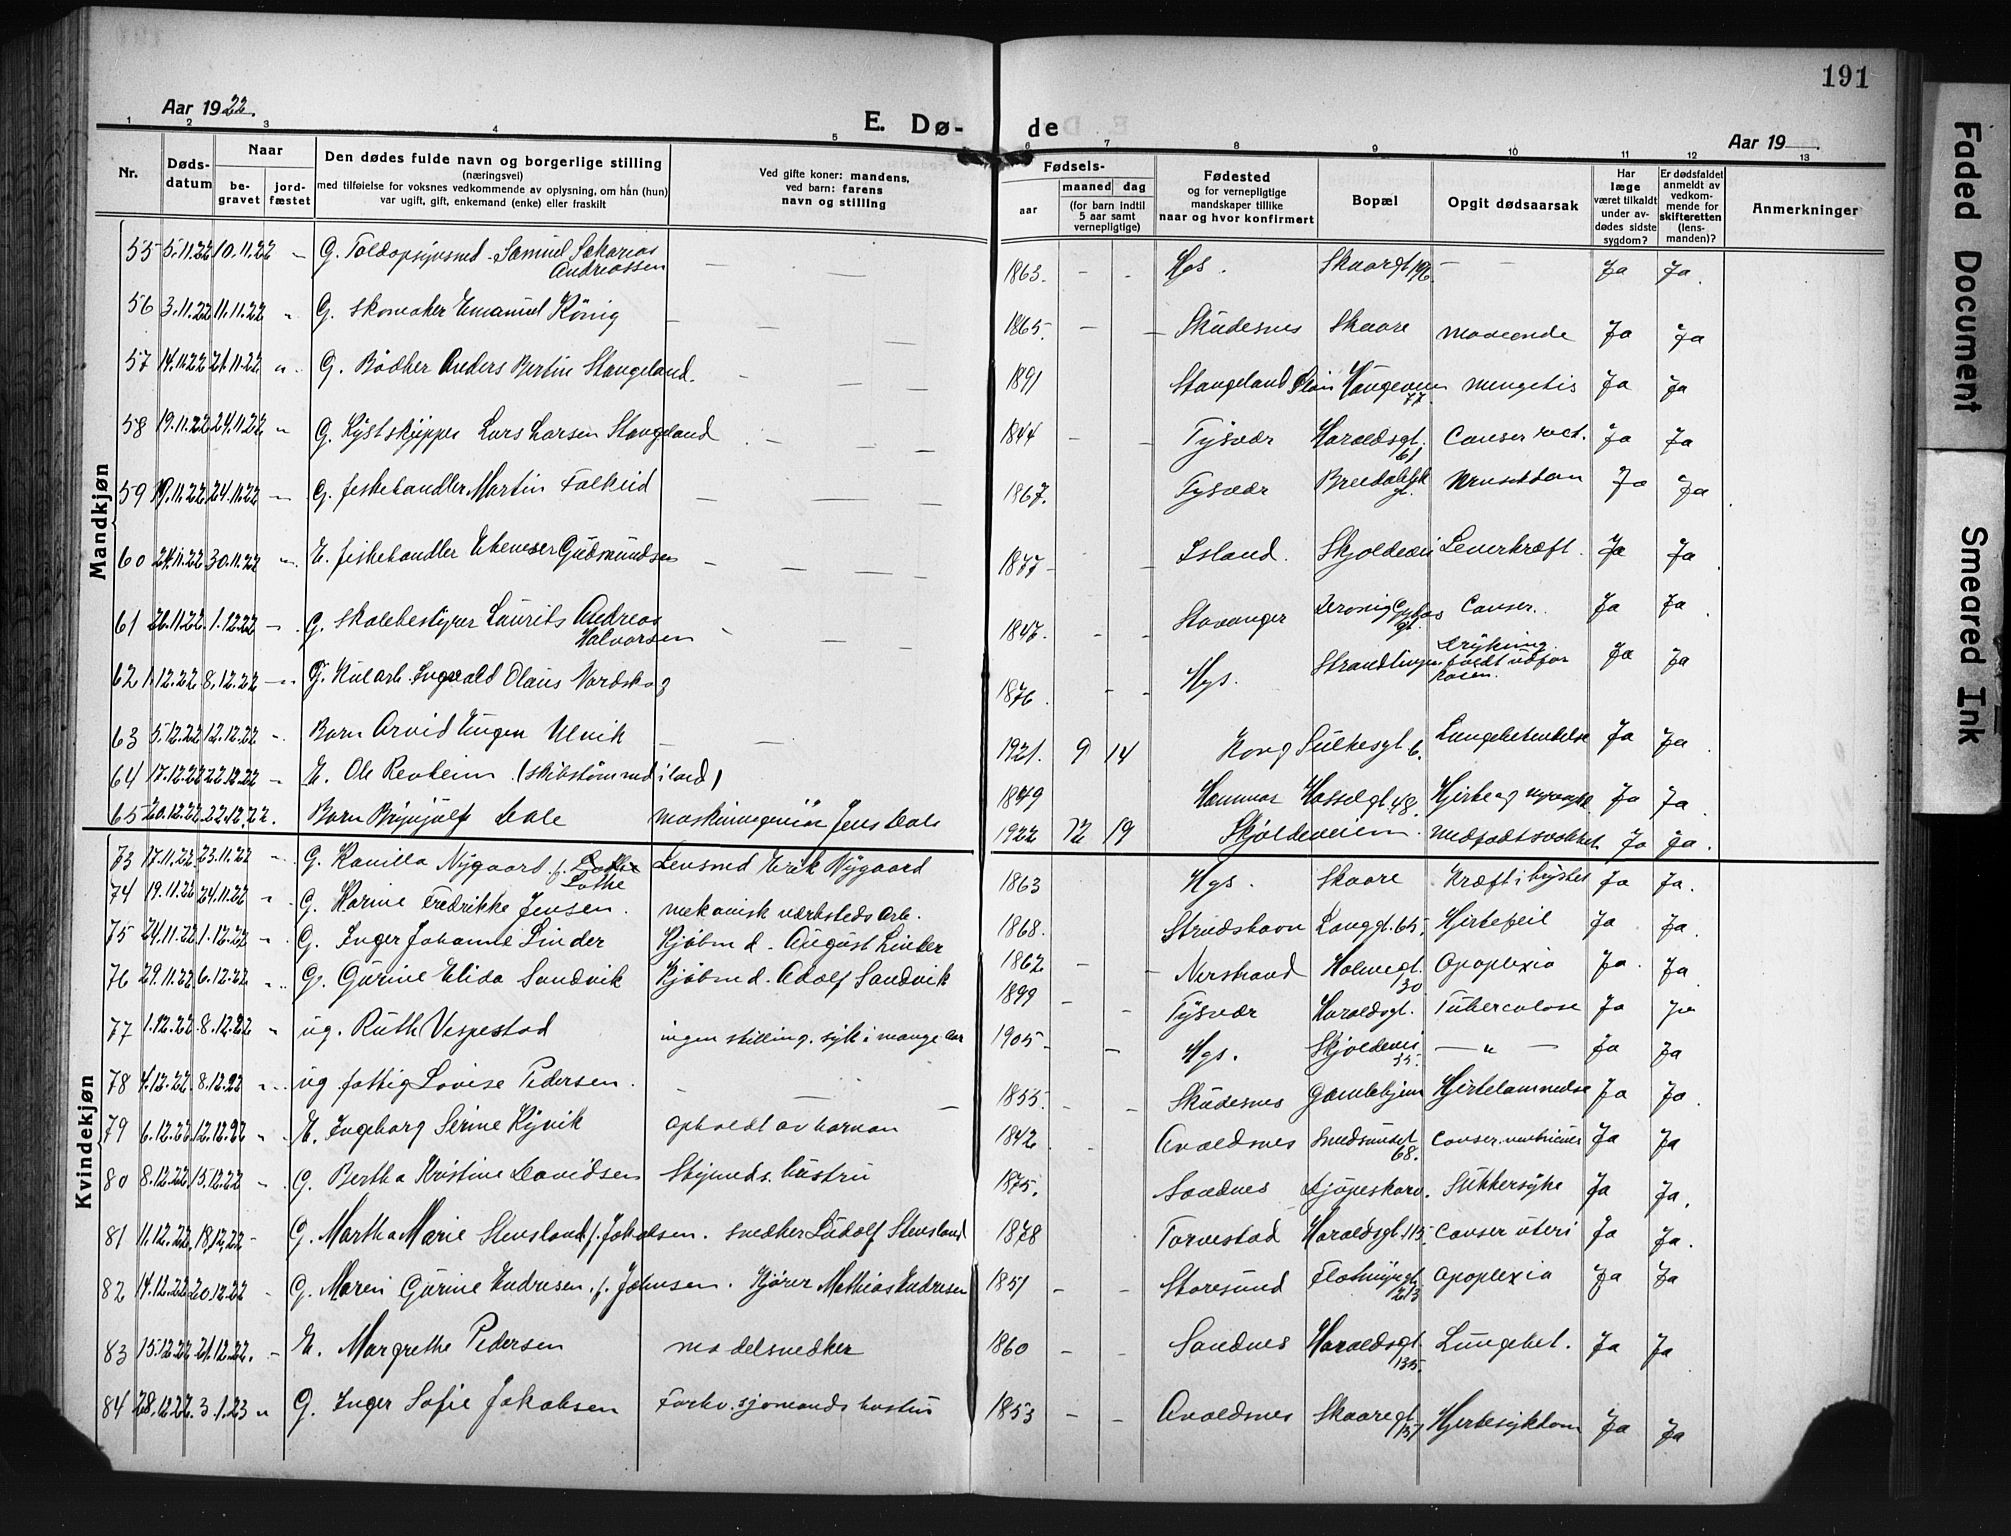 191
Aar 1922.
E. Dø-
de
Aar 19
1 2 3 4 5 6 7 8 9 10 11 12 13
Nr.
Døds-
datum
Naar
be-
gravet
jord-
fæstet
Den dødes fulde navn og borgerlige stilling
(næringsvei)
med tilføielse for voksnes vedkommende av oplysning, om hån (hun)
var ugift, gift, enkemand (enke) eller fraskilt
Ved gifte koner: mandens,
ved barn: farens
navn og stilling
Fødsels-
aar
maaned dag
(for barn indtil
5 aar samt
vernepligtige)
Fødested
og for vernepligtige
mandskaper tillike
naar og hvor konfirmert
Bopæl
Opgit dødsaarsak
Har
læge
været tilkaldt
under av-
dødes sidste
sygdom?
Er dødsfaldet
anmeldt av
vedkom-
mende for
skifteretten
(lens-
manden)?
Anmerkninger
Mandkjøn
55 5.11.22 10.11.22 - G. Toldopsynsmd. Samuel Sakarias
Andreassen — — — 1863. - - Hgs. Skaaregt 196. - - Ja Ja.
56 3.11.22 11.11.22 " G. Skomaker Emanuel König — — — 1865. - - Skudesnes Skaare Ja Ja
57 14.11.22 21.11.22 " G. Bødker Anders Bertin Stangeland. - - - 1891 Stangeland Haugeveien
77 mengetis Ja Ja
58 19.11.22 24.11.22 " G. Kystskipper Lars Larsen Stangeland - - - 1844 - - Tysvær Haraldsgt.
61 Canser rect. Ja Ja
59 19.11.22 24.11.22 " G. fiskehandler Martin Falkeid — — — 1867. Tysvær Ja Ja
60 24.11.22 30.11.22 " E. fiskehandler Ebeneser Gudmundsen - — — — 1877 - - Island. Skjoldevei Leverkræft. Ja Ja
61 26.11.22 1.12.22 - G. Skolebestyrer Laurits Andreas
Halvorsen - - - 1847. - - Stavanger Canser.. Ja Ja
62 1.12.22 8.12.22 - G. Kularb. Ingvald Olaus Nordskog 1876. - - Hgs. Ja Ja
63 5.12.22 12.12.22 - Barn Arvid Eugen Ulvik — — 1921. 9 14 Sulkesgt 6. Lungebetendelse Ja Ja
64 17.12.22 22.12.22 - E. Ole Revheim. 1849 Hasselgt. 48. Ja Ja
65 20.12.22 22.12.22. Barn Brynjulf Dale maskiningeniør Jens Dale 1922 12 19 Skjoldeveien. medfødt svakhet Ja Ja.
Kvindekjøn
73 17.11.22 23.11.22 " G. Kanilla Nygaard. f.
Lothe Lensmd Erik Nygaard 1863 Hgs. Skaare Kræft i brystet Ja Ja.
74 19.11.22 24.11.22 " G. Karine Fredrikke Jensen. mekanisk værksteds arb. 1868. Langgt. 65. Hjertefeil Ja Ja.
75 24.11.22 1.12.22 " G. Inger Johanne Linder Kjøbmd. August Linder 1862 - - Nerstrand Holmegt.
30 Apoplexia Ja. Ja
76 29.11.22 6.12.22 " G. Gurine Elida Sandvik Kjøbmd. Adolf Sandvik 1899 - - Tysvær Haraldsgt. Tuberculose Ja Ja
77 1.12.22 8.12.22 " ug. Ruth Vespestad ingen stilling. syk i mange aar 1905 - - Hgs. Skjoldevei
35. — " — Ja Ja
78 4.12.22 8.12.22 " ug fattig Lovise Pedersen. — — — 1855. - - Skudesnes Gamlehjem Hjertelammelse Ja Ja.
79 6.12.22 12.12.22 " E. Ingeborg Serine Kyvik opholdt av barnan 1842 - - Avaldsnes Smedsundet
68. Ja Ja
80 8.12.22 15.12.22 - G. Bertha Kristine Davidsen Styrmds. hustru 1875. Sandnes Djupeskarv. Sukkersyke Ja Ja.
81 11.12.22. 18.12.22 - G. Martha Marie Stensland f. Jakobsen. snedker Ludolf Stensland 1878 Torvestad Haraldsgt. 115. Canser uteri Ja Ja.
82 14.12.22 20.12.22 - G. Maren Gurine Endresen. f. Johnsen. Kjører Mathias Endresen 1851 - - Storesund Flotmyrgt.
213 Apoplexia Ja Ja
83 15.12.22 21.12.22. - E. Margrethe Pedersen modelsnedker 1860 - - Sandnes Haraldsgt.
135. Lungebet. Ja Ja
84 28.12.22. 3.1.23 " G. Inger Sofie Jakobsen Forhv. sjømands hustru 1853 - - Avaldsnes Skaaregt.
157 Hjertesykdom Ja Ja
Faded Document
Smeared Ink